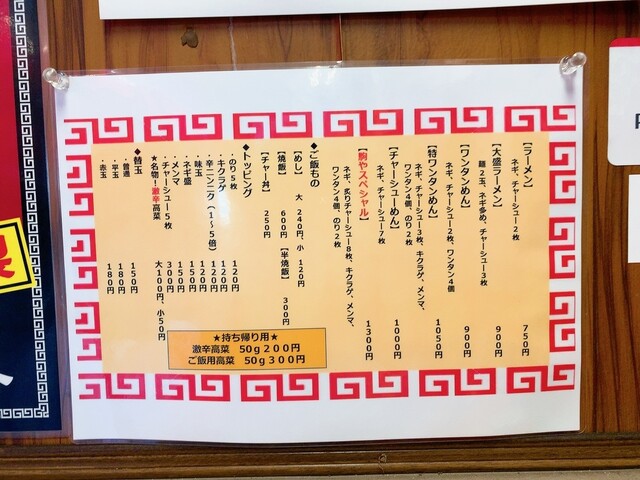 【ラーメン】 750円
ネギ、チャーシュー2枚
【大盛ラーメン】 900円
麺2玉、ネギ多め、チャーシュー3枚
【ワンタンめん】 900円
ネギ、チャーシュー2枚、ワンタン4個
【特ワンタンめん】 1050円
ネギ、チャーシュー3枚、キクラゲ、メンマ、
ワンタン4個、のり2枚
【チャーシューめん】 1000円
ネギ、チャーシュー7枚
【胸やスペシャル】 1300円
ネギ、炙りチャーシュー8枚、キクラゲ、メンマ、
ワンタン4個、のり2枚
◆ご飯もの
【めし】 大 240円、小 120円
【焼飯】 600円 【半焼飯】 300円
【チャー丼】 250円
◆トッピング
・のり5枚 120円
・キクラゲ 120円
・辛ニンニク(1～5倍) 120円
・味玉 120円
・ネギ盛 150円
・メンマ 150円
・チャーシュー5枚 300円
★名物!激辛高菜 大100円、小50円
◆替玉
・普通 150円
・平玉 180円
・赤玉 180円
★持ち帰り用★
激辛高菜 50g200円
ご飯用高菜 50g300円